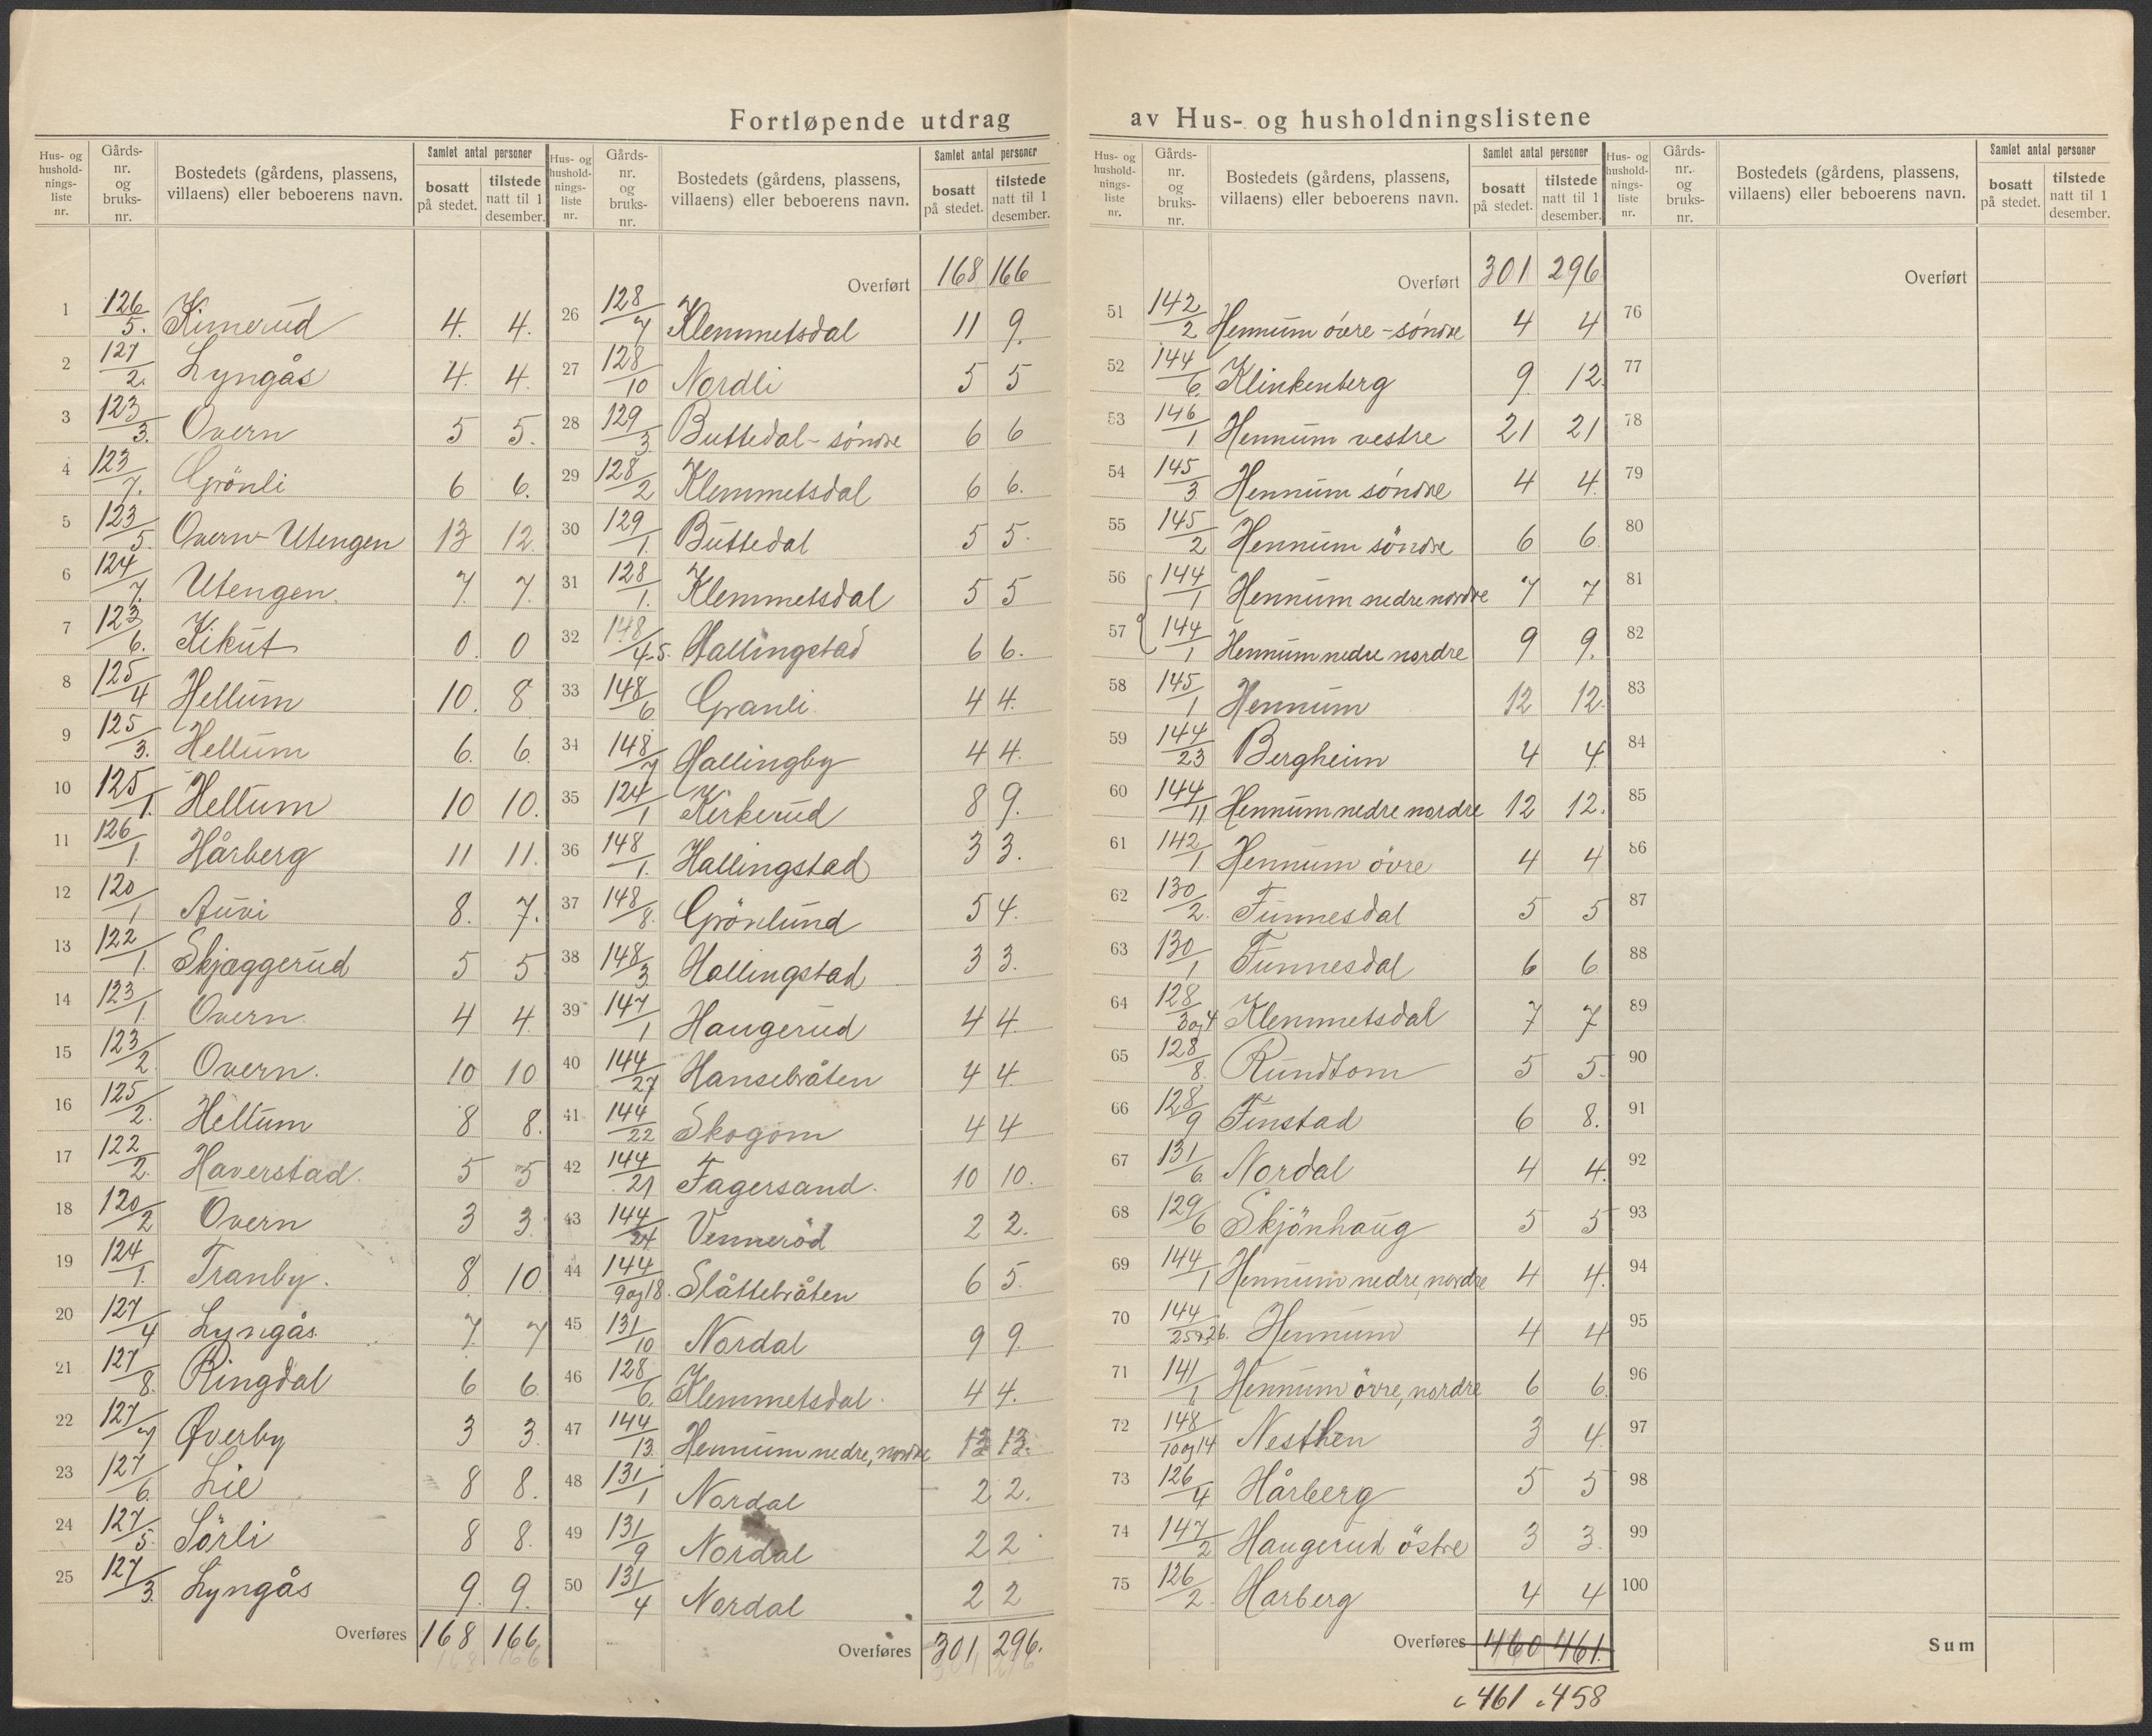 Fortløpende utdrag av Hus- og husholdningslistene
Hus- og husholdningsliste nr. Gårdsnr. og bruksnr. Bostedets (gårdens, plassens, villaens) eller beboerens navn. Samlet antal personer bosatt på stedet. tilstede natt til 1 desember.
1 126/5. Kimerud 4. 4.
2 127/2. Lyngås 4. 4.
3 123/3. Overn 5 5.
4 123/7. Grönli 6 6.
5 123/5. Overn-Utengen 13 12.
6 124/7. Utengen. 7. 7.
7 123/6. Kikut 0. 0
8 125/4 Hellum 10. 8
9 125/3. Hellum 6. 6.
10 125/1. Hellum 10 10.
11 126/1. Hårberg 11 11.
12 120/1 Auvi 8. 7.
13 122/1. Skjæggerud 5 5
14 123/1. Overn. 4 4.
15 123/2. Overn. 10 10
16 125/2. Hellum 8 8.
17 122/2. Haverstad. 5 5
18 120/2 Overn 3 3.
19 124/1. Tranby. 8. 10
20 127/4 Lyngås. 7 7
21 127/8. Ringdal 6 6.
22 127/7 Øverby 3 3.
23 127/6. Lie 8 8.
24 127/5. Sörli 8 8.
25 127/3. Lyngås 9. 9.
Overføres 168 166.
Hus- og husholdningsliste nr. Gårdsnr. og bruksnr. Bostedets (gårdens, plassens, villaens) eller beboerens navn. Samlet antal personer bosatt på stedet. tilstede natt til 1 desember.
Overført 168 166
26 128/7 Klemmetsdal 11 9.
27 128/10 Nordli 5 5
28 129/3. Buttedal-söndre 6 6
29 128/2 Klemmetsdal 6 6.
30 129/1. Buttedal 5 5.
31 128/1. Klemmetsdal 5 5
32 148/4-5. Hallingstad 6 6.
33 148/6 Granli 4 4.
34 148/7 Hallingby 4 4.
35 124/1 Kirkerud 8 9.
36 148/1. Hallingstad 3 3.
37 148/8. Grönlund 5 4.
38 148/3 Hallingstad 3 3.
39 147/1 Haugerud 4 4.
40 144/27 Hansebråten 4 4.
41 144/22 Skogom 4 4
42 144/21 Fagersand. 10 10.
43 144/24 Venneröd 2 2.
44 144/9og18. Slåttebråten 6 5.
45 131/10 Nordal 9 9.
46 128/6. Klemmetsdal. 4 4.
47 144/13. Hennum nedre, nordre 13 13.
48 131/1 Nordal 2 2.
49 131/9 Nordal 2 2
50 131/4 Nordal 2 2
Overføres 301 296.
Hus- og husholdningsliste nr. Gårdsnr. og bruksnr. Bostedets (gårdens, plassens, villaens) eller beboerens navn. Samlet antal personer bosatt på stedet. tilstede natt til 1 desember.
Overført 301 296
51 142/2 Hennum övre-söndre 4 4
52 144/6. Klinkenberg 9 12.
53 146/1 Hennum vestre 21 21
54 145/3 Hennum söndre 4 4.
55 145/2 Hennum söndre 6 6.
56 144/1 Hennum nedre nordre 7 7
57 144/1 Hennum nedre nordre 9 9.
58 145/1 Hennum 12 12.
59 144/23 Bergheim 4 4
60 144/11 Hennum nedre nordre 12 12.
61 142/1 Hennum övre 4 4
62 130/2. Funnesdal 5 5
63 130/1 Funnesdal 6 6
64 128/3og4 Klemmetsdal 7 7
65 128/8. Rundtom 5 5.
66 128/9 Finstad 6 8.
67 131/6. Nordal 4 4.
68 129/6 Skjönhaug 5 5
69 144/1 Hennum nedre, nordre 4 4.
70 144/25og26. Hennum 4 4
71 141/1 Hennum övre, nordre 6 6.
72 148/10og14 Nesthen 3 4.
73 126/4 Hårberg 5 5
74 147/2 Haugerud östre 3 3.
75 126/2. Harberg 4 4
Overføres 460 461.
461 458
Hus- og husholdningsliste nr. Gårdsnr. og bruksnr. Bostedets (gårdens, plassens, villaens) eller beboerens navn. Samlet antal personer bosatt på stedet. tilstede natt til 1 desember.
Overført
76
77
78
79
80
81
82
83
84
85
86
87
88
89
90
91
92
93
94
95
96
97
98
99
100
Sum